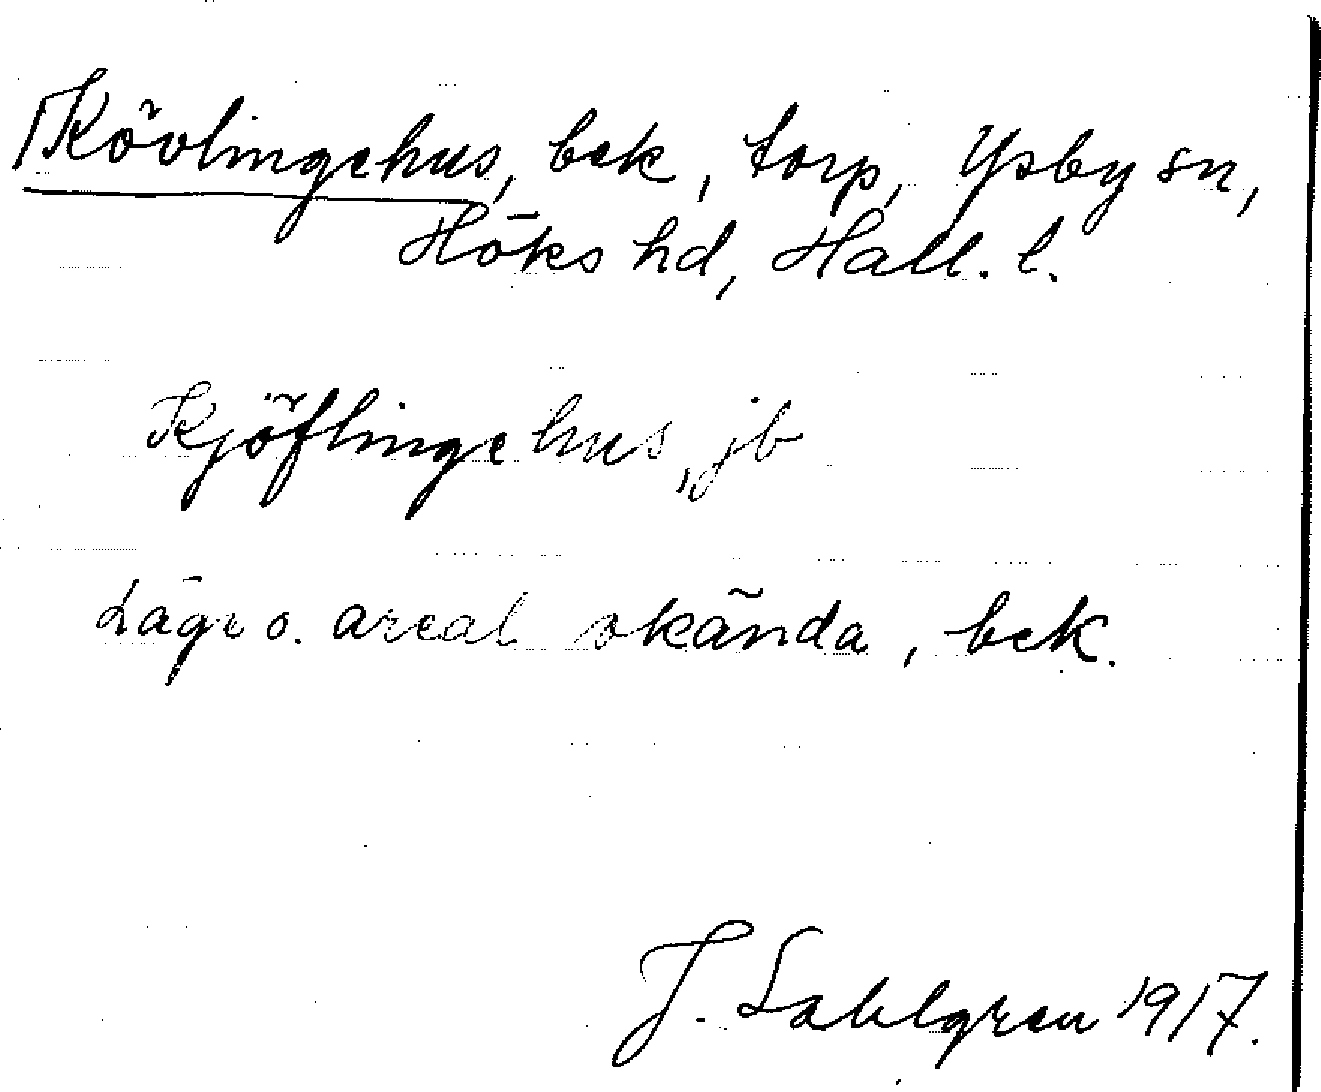 Kövlingehus, bek, torp, Ysby sn,
Höks hd, Hall. l.
Kjöflingehus, jb
Läge o. areal okända, bek.
J. Sahlgren 1917.